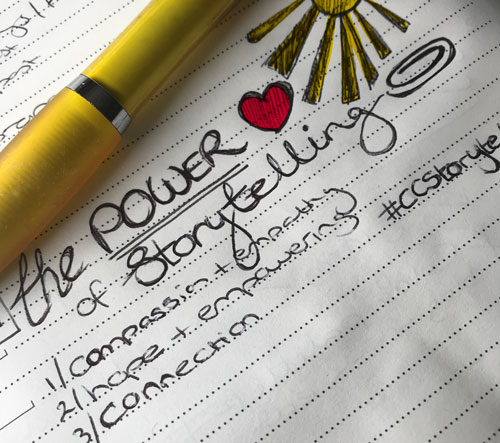 the POWER
of Storytelling
1/ compassion + empathy
2/ hope + empowering
3/ connection